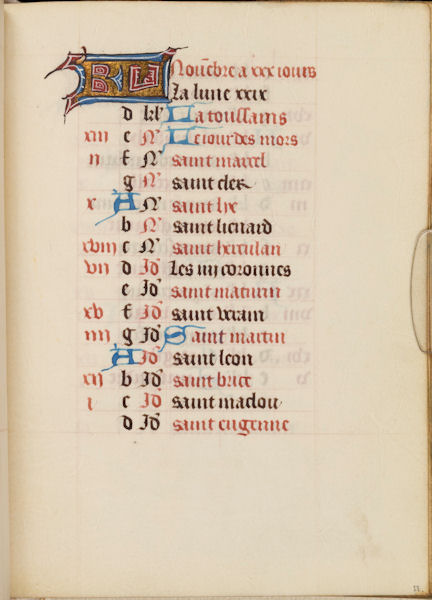 KL Nouēbre a xxx iours
La lune xxix
d kl' La toussains
xiii e N' Le iour des mors
ii f N' saint marcel
g N' saint cler
x A N' saint lye
b N' saint lienard
xviii c N' saint herculan
vii d Id' Les iiij coronnes
e Id' saint maturin
xv f Id' saint verain
iiii g Id' Saint martin
A Id' saint leon
xii b Id' saint brice
i c Id' saint maclou
d Id' saint eugenne